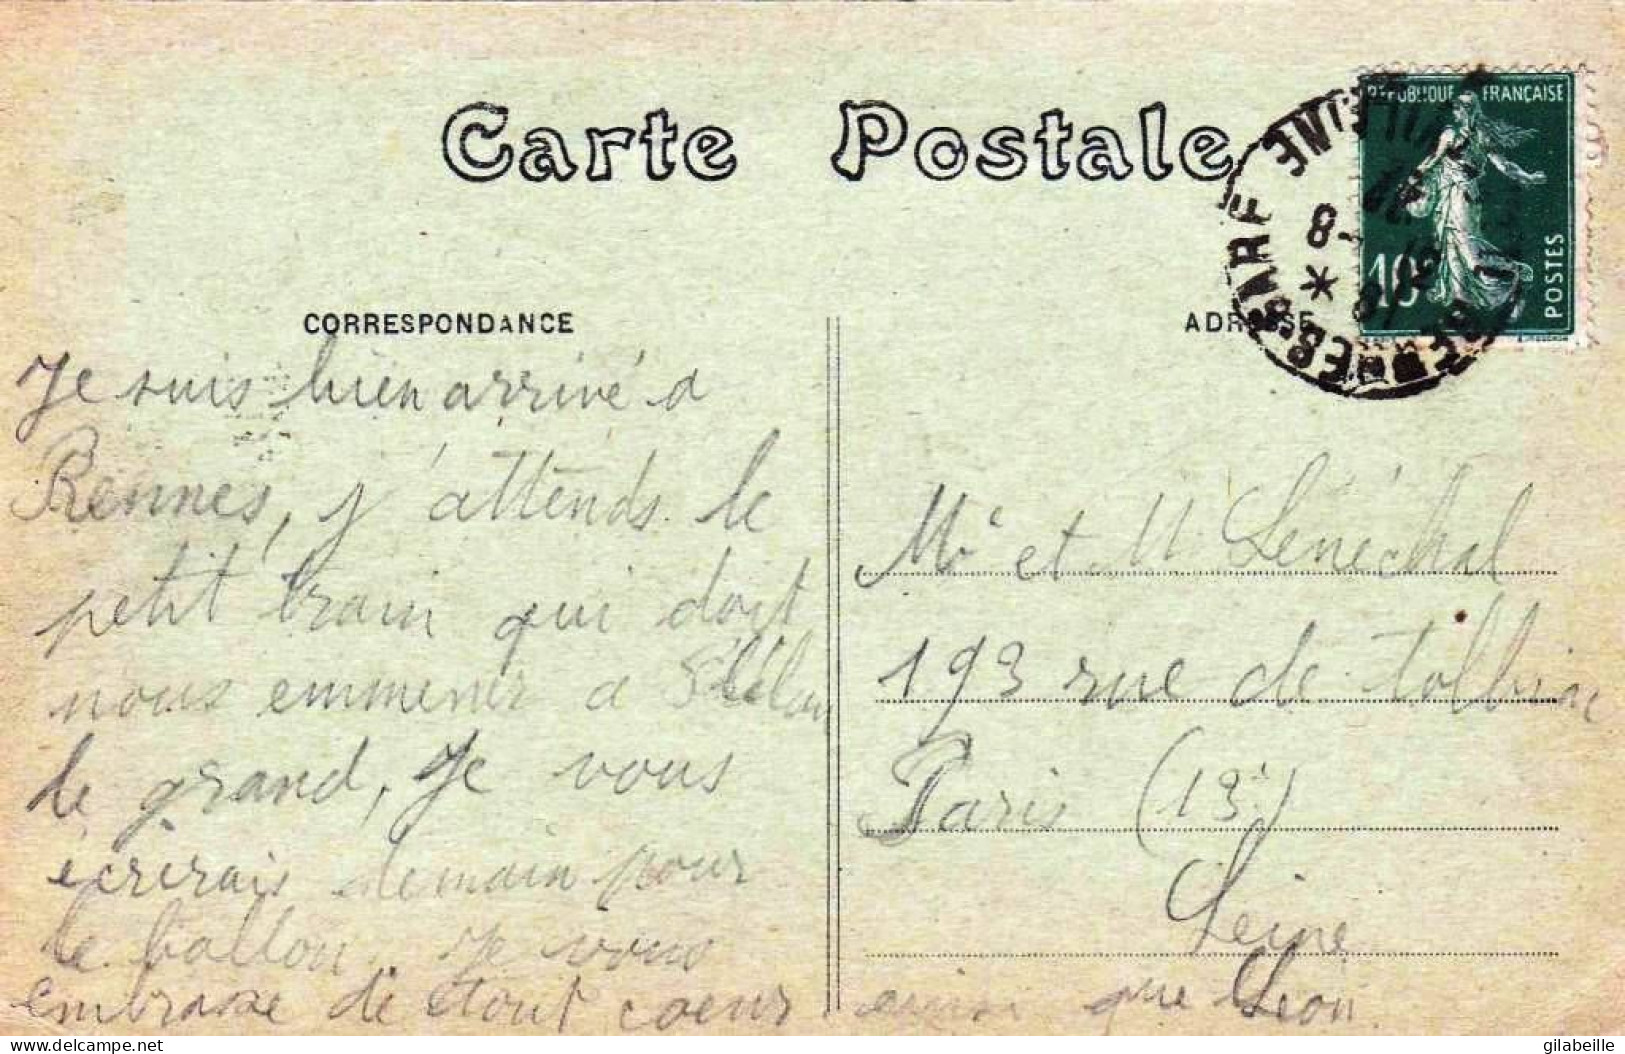 Carte Postale
REPUBLIQUE FRANÇAISE
10c
POSTES
CORRESPONDANCE
ADRESSE
Je suis bien arrivé a
Rennes, j'attends le
petit train qui doit
nous emmener a
le grand, Je vous
écrirais demain pour
le ballon. Je vous
embrasse de tout coeur
ainsi que Léon.
Mr et M Sénéchal
193 rue de Tolbiac
Paris (13e)
Seine
gilabeille
delcampe.net